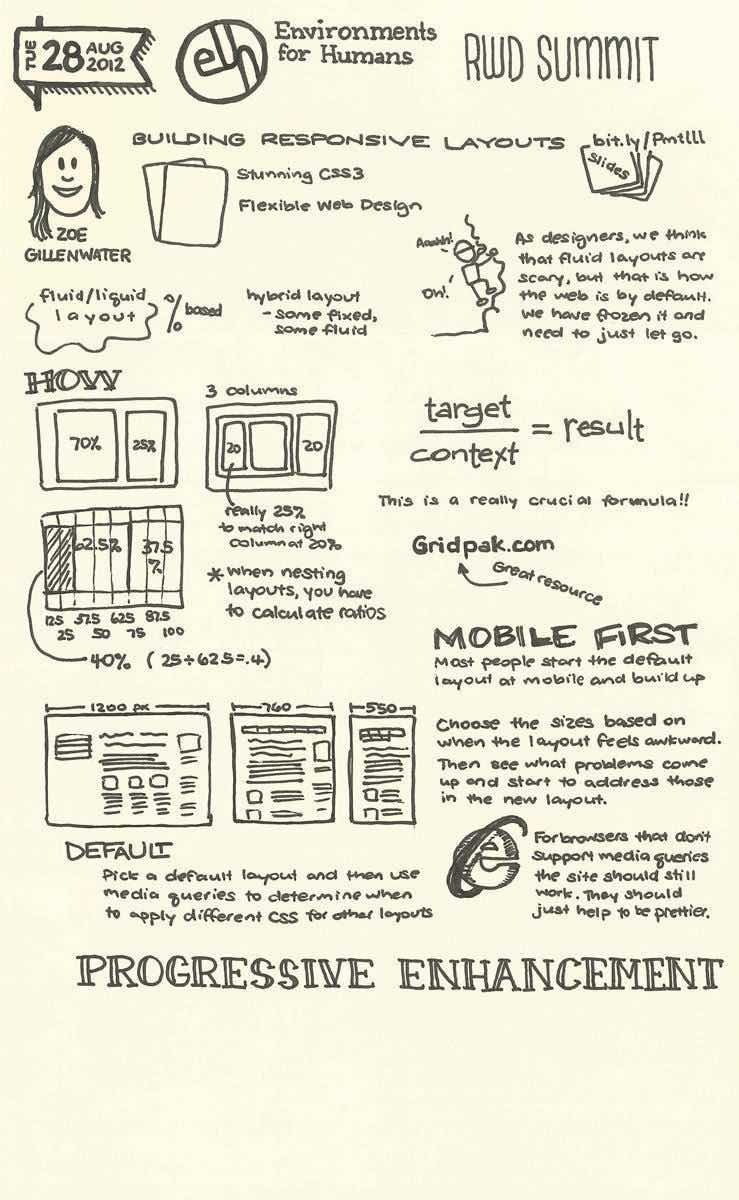 TUE 28 AUG 2012
efh
Environments
for Humans
RWD SUMMIT
BUILDING RESPONSIVE LAYOUTS
bit.ly/Pmtlll
Slides
Stunning CSS3
Flexible Web Design
ZOE
GILLENWATER
Aaahh!
Oh!
As designers, we think
that fluid layouts are
scary, but that is how
the web is by default.
We have frozen it and
need to just let go.
fluid/liquid
layout
% based
hybrid layout
- some fixed,
some fluid
HOW
70% 25%
3 columns
20 20
really 25%
to match right
column at 20%
* When nesting
layouts, you have
to calculate ratios
target
context
= result
This is a really crucial formula!!
Gridpak.com
Great resource
62.5% 37.5
%
12.5 37.5 62.5 87.5
25 50 75 100
40% (25÷62.5=.4)
MOBILE FIRST
Most people start the default
layout at mobile and build up
1200 px 760 550
Choose the sizes based on
when the layout feels awkward.
Then see what problems come
up and start to address those
in the new layout.
DEFAULT
Pick a default layout and then use
media queries to determine when
to apply different CSS for other layouts
e
For browsers that don't
support media queries
the site should still
work. They should
just help to be prettier.
PROGRESSIVE ENHANCEMENT